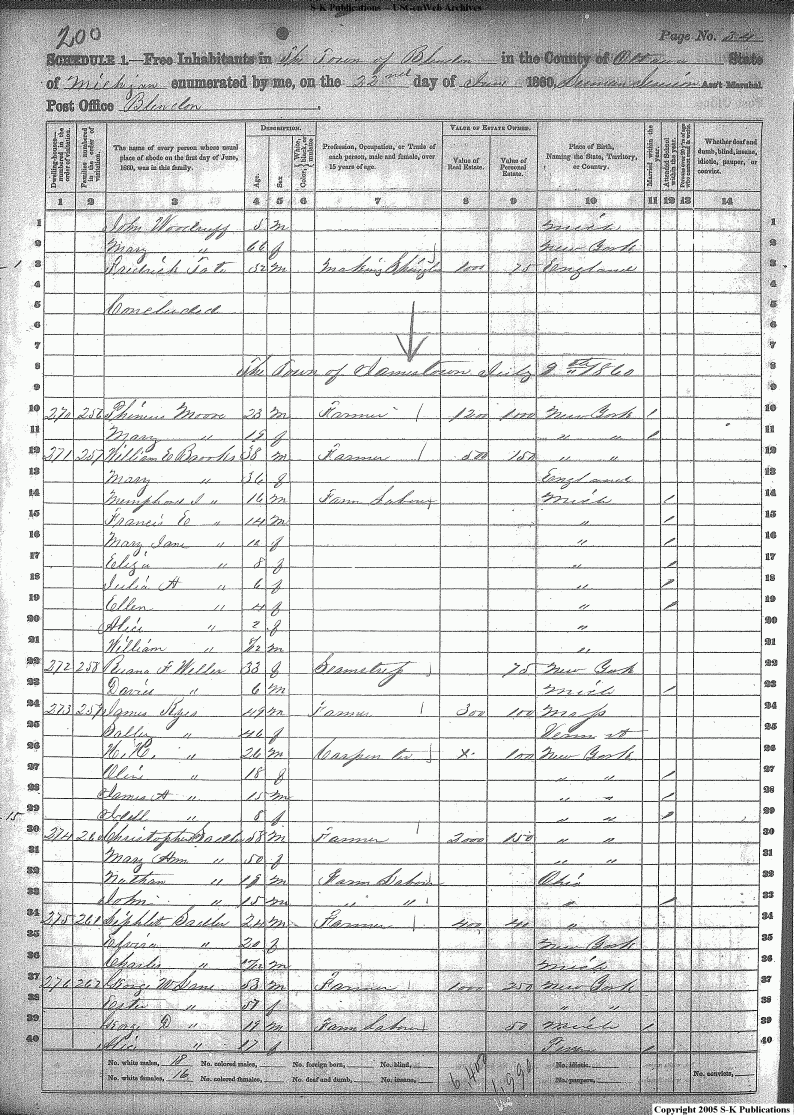 S-K Publications -- USGenWeb Archives
200
Page No. 34
SCHEDULE 1.—Free Inhabitants in The Town of Blendon in the County of Ottawa State
of Michigan enumerated by me, on the 22nd day of June 1860. Ass't Marshal
Post Office Blendon
DESCRIPTION. VALUE OF ESTATE OWNED.
Dwelling-houses— numbered in the order of visitation. Families numbered in the order of visitation. The name of every person whose usual place of abode on the first day of June, 1860, was in this family. Age. Sex. Color, White, black, or mulatto. Profession, Occupation, or Trade of each person, male and female, over 15 years of age. Value of Real Estate. Value of Personal Estate. Place of Birth, Naming the State, Territory, or Country. Married within the year. Attended School within the year. Whether deaf and dumb, blind, insane, idiotic, pauper, or convict.
1 2 3 4 5 6 7 8 9 10 11 12 13 14
1 John Woodruff 5 m Mich 1
2 Mary " 66 f New York 2
3 Fredrick Tate 52 m Making Shingles 1000 75 England 3
4 4
5 Concluded 5
6 6
7 7
8 The Town of Jamestown July 9th 1860 8
9 9
10 270 256 Phineus Moore 23 m Farmer 1200 1000 New York / 10
11 Mary " 19 f " " / 11
12 271 257 William E Brooks 38 m Farmer 500 150 " " 12
13 Mary " 36 f England 13
14 " 16 m Farm Labour Mich / 14
15 Francis E " 14 m " / 15
16 Mary Jane " 12 f " / 16
17 Eliza " 8 f " / 17
18 Julia A " 6 f " / 18
19 Ellen " 4 f " / 19
20 Alice " 2 f " 20
21 William " /12 m " 21
22 272 258 F Weller 33 f Seamstress 75 New York 22
23 David " 6 m Mich / 23
24 273 259 James 49 m Farmer 300 100 Mass 24
25 " 46 f Vermont 25
26 H. H. " 26 m Carpenter x 100 New York 26
27 Olive " 18 f " " / 27
28 James A " 15 m " " / 28
29 " 8 f " " / 29
30 274 260 Christopher 58 m Farmer 2000 150 " " 30
31 Mary Ann " 50 f " " 31
32 Nathan " 19 m Farm Labour Ohio 32
33 John " 15 m " " " / 33
34 275 261 24 m Farmer 400 40 " 34
35 " 20 f New York 35
36 Charles " /12 m Mich 36
37 276 262 George W 53 m Farmer 1000 250 New York 37
38 " 57 f " " 38
39 George D " 19 m Farm Labour 50 Mich / 39
40 " 17 f / 40
No. white males, 18 No. colored males, No. foreign born, No. blind, No. idiotic,
No. white females, 16 No. colored females, No. deaf and dumb, No. insane, 6400 1990 No. paupers, No. convicts,
Copyright 2005 S-K Publications